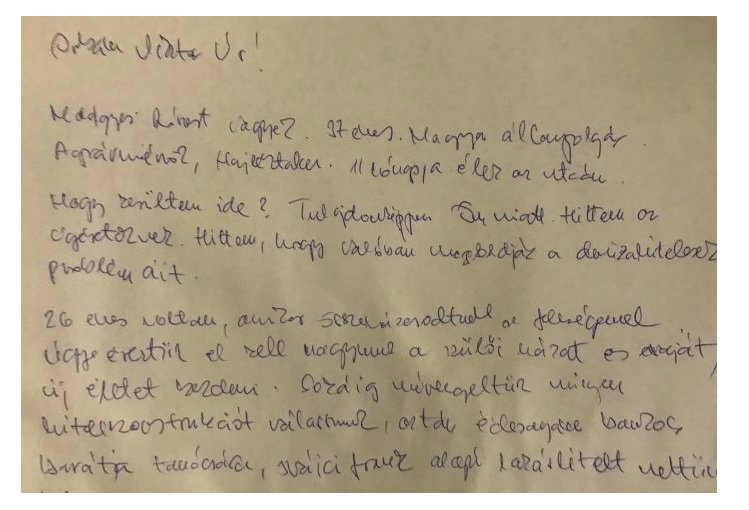 Orbán Viktor Úr!
Medgyesi Róbert vagyok. 37 éves. Magyar állampolgár.
Agrármérnök, Hajléktalan. 11 hónapja élek az utcán.
Hogy kerültem ide? Tulajdonképpen Ön miatt. Hittem az
ígéretöknek. Hittem, hogy valóban megoldják a devizahitelesek
problémáit.
26 éves voltam, amikor összeházasodtunk a feleségemmel.
Úgy éreztük el kell hagynunk a szülői házat és
új életet kezdeni. Sokáig milyen
hitelkonstrukciót válasszunk, aztán édesapám bankos
barátja tanácsára, svájci frank alapú lakáshitelt vettünk